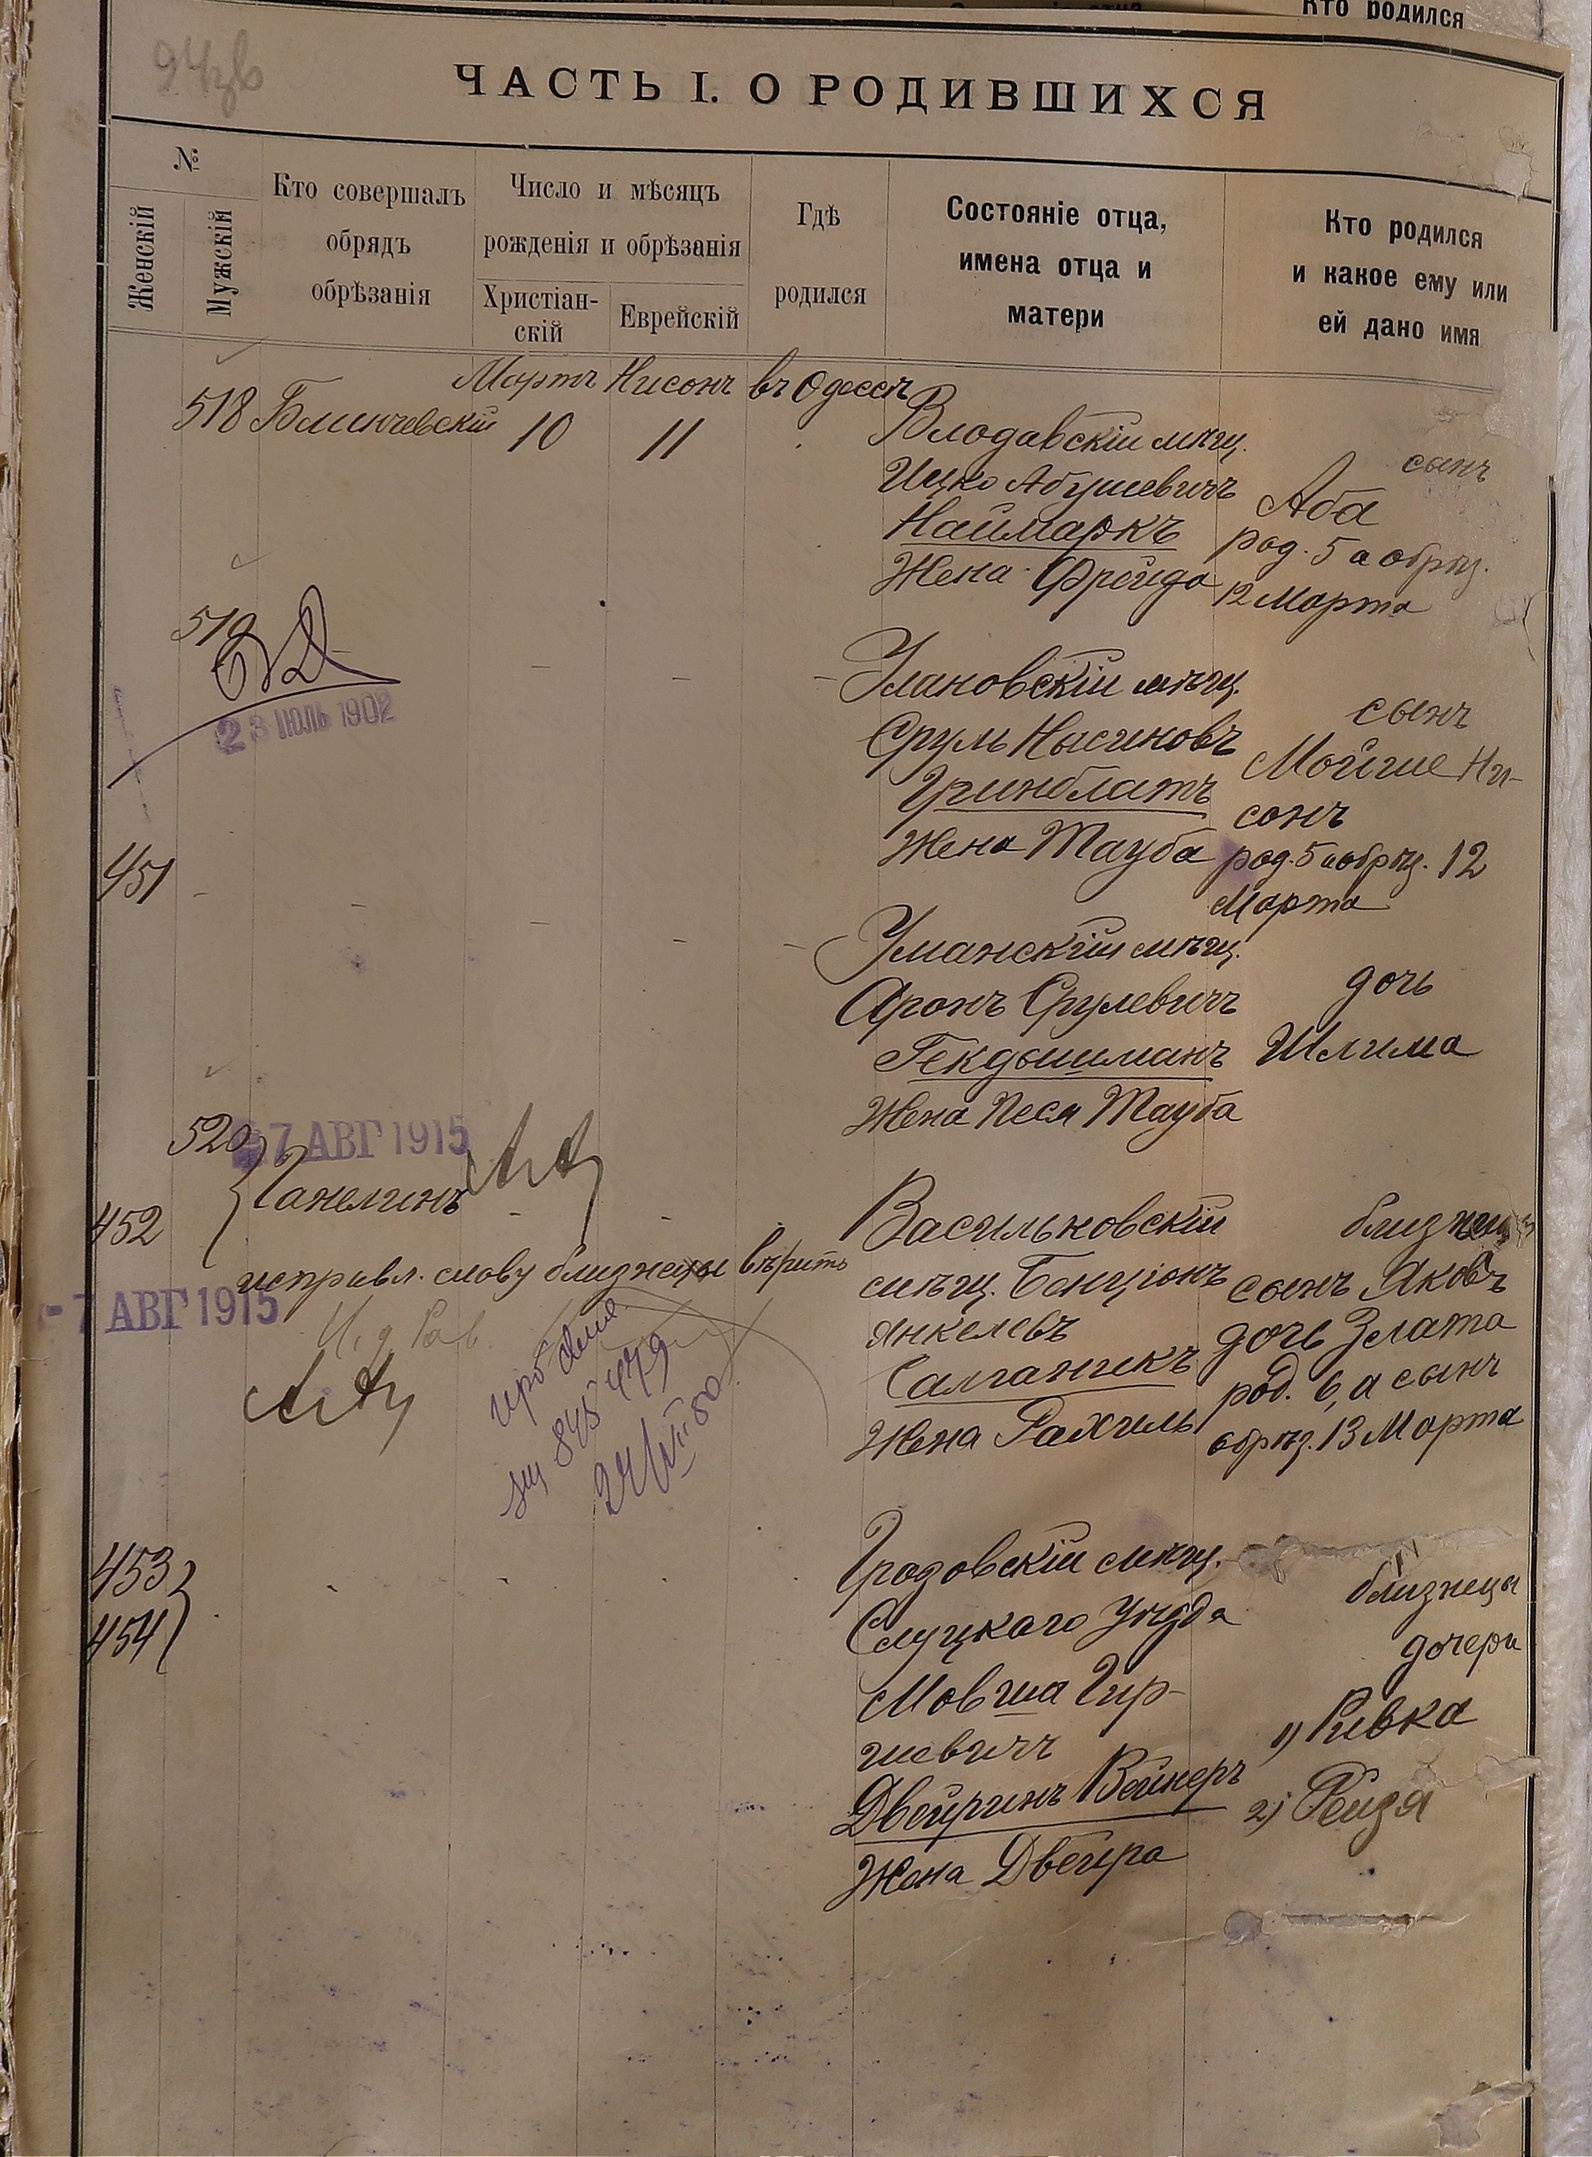 Кто родился
ЧАСТЬ I. О РОДИВШИХСЯ
№
Женскій
Мужскій
Кто совершалъ
обрядъ
обрѣзанія
Число и мѣсяцъ
рожденія и обрѣзанія
Христіан-
скій
Еврейскій
Гдѣ
родился
Состояніе отца,
имена отца и
матери
Кто родился
и какое ему или
ей дано имя
Мартъ Нисонъ въ Одессѣ
518 Блинчевскій 10 11
Влодавскій мѣщ.
Ицко Абушевичъ
Наймаркъ
Жена Фрейда
сынъ
Аба
род. 5 а обрѣз.
12 Марта
519
23 ІЮЛЬ 1902
Улановскій мѣщ.
Сруль Нысиновъ
Гринблатъ
Жена Тауба
сынъ
Мойше Ни-
сонъ
род. 5 а обрѣз. 12
Марта
451
Уманскій мѣщ.
Аронъ Срулевичъ
Гекдышманъ
Жена Песя Тауба
дочь
Шлима
520
7 АВГ 1915
Ганелинъ
452
исправл. слову близнецы вѣрить
- 7 АВГ 1915
И. д. Рав.
845 479
Васильковскій
мѣщ. Бенціонъ
Янкелевъ
Салганикъ
Жена Рахиль
близнецы
сынъ Яковъ
дочь Злата
род. 6, а сынъ
обрѣз. 13 Марта
453
454
Гродовскій мѣщ.
Слуцкаго уѣзда
Мовша Гир-
шевичъ
Двейринъ Вейнеръ
Жена Двейра
близнецы
дочери
1) Ривка
2) Рейзя